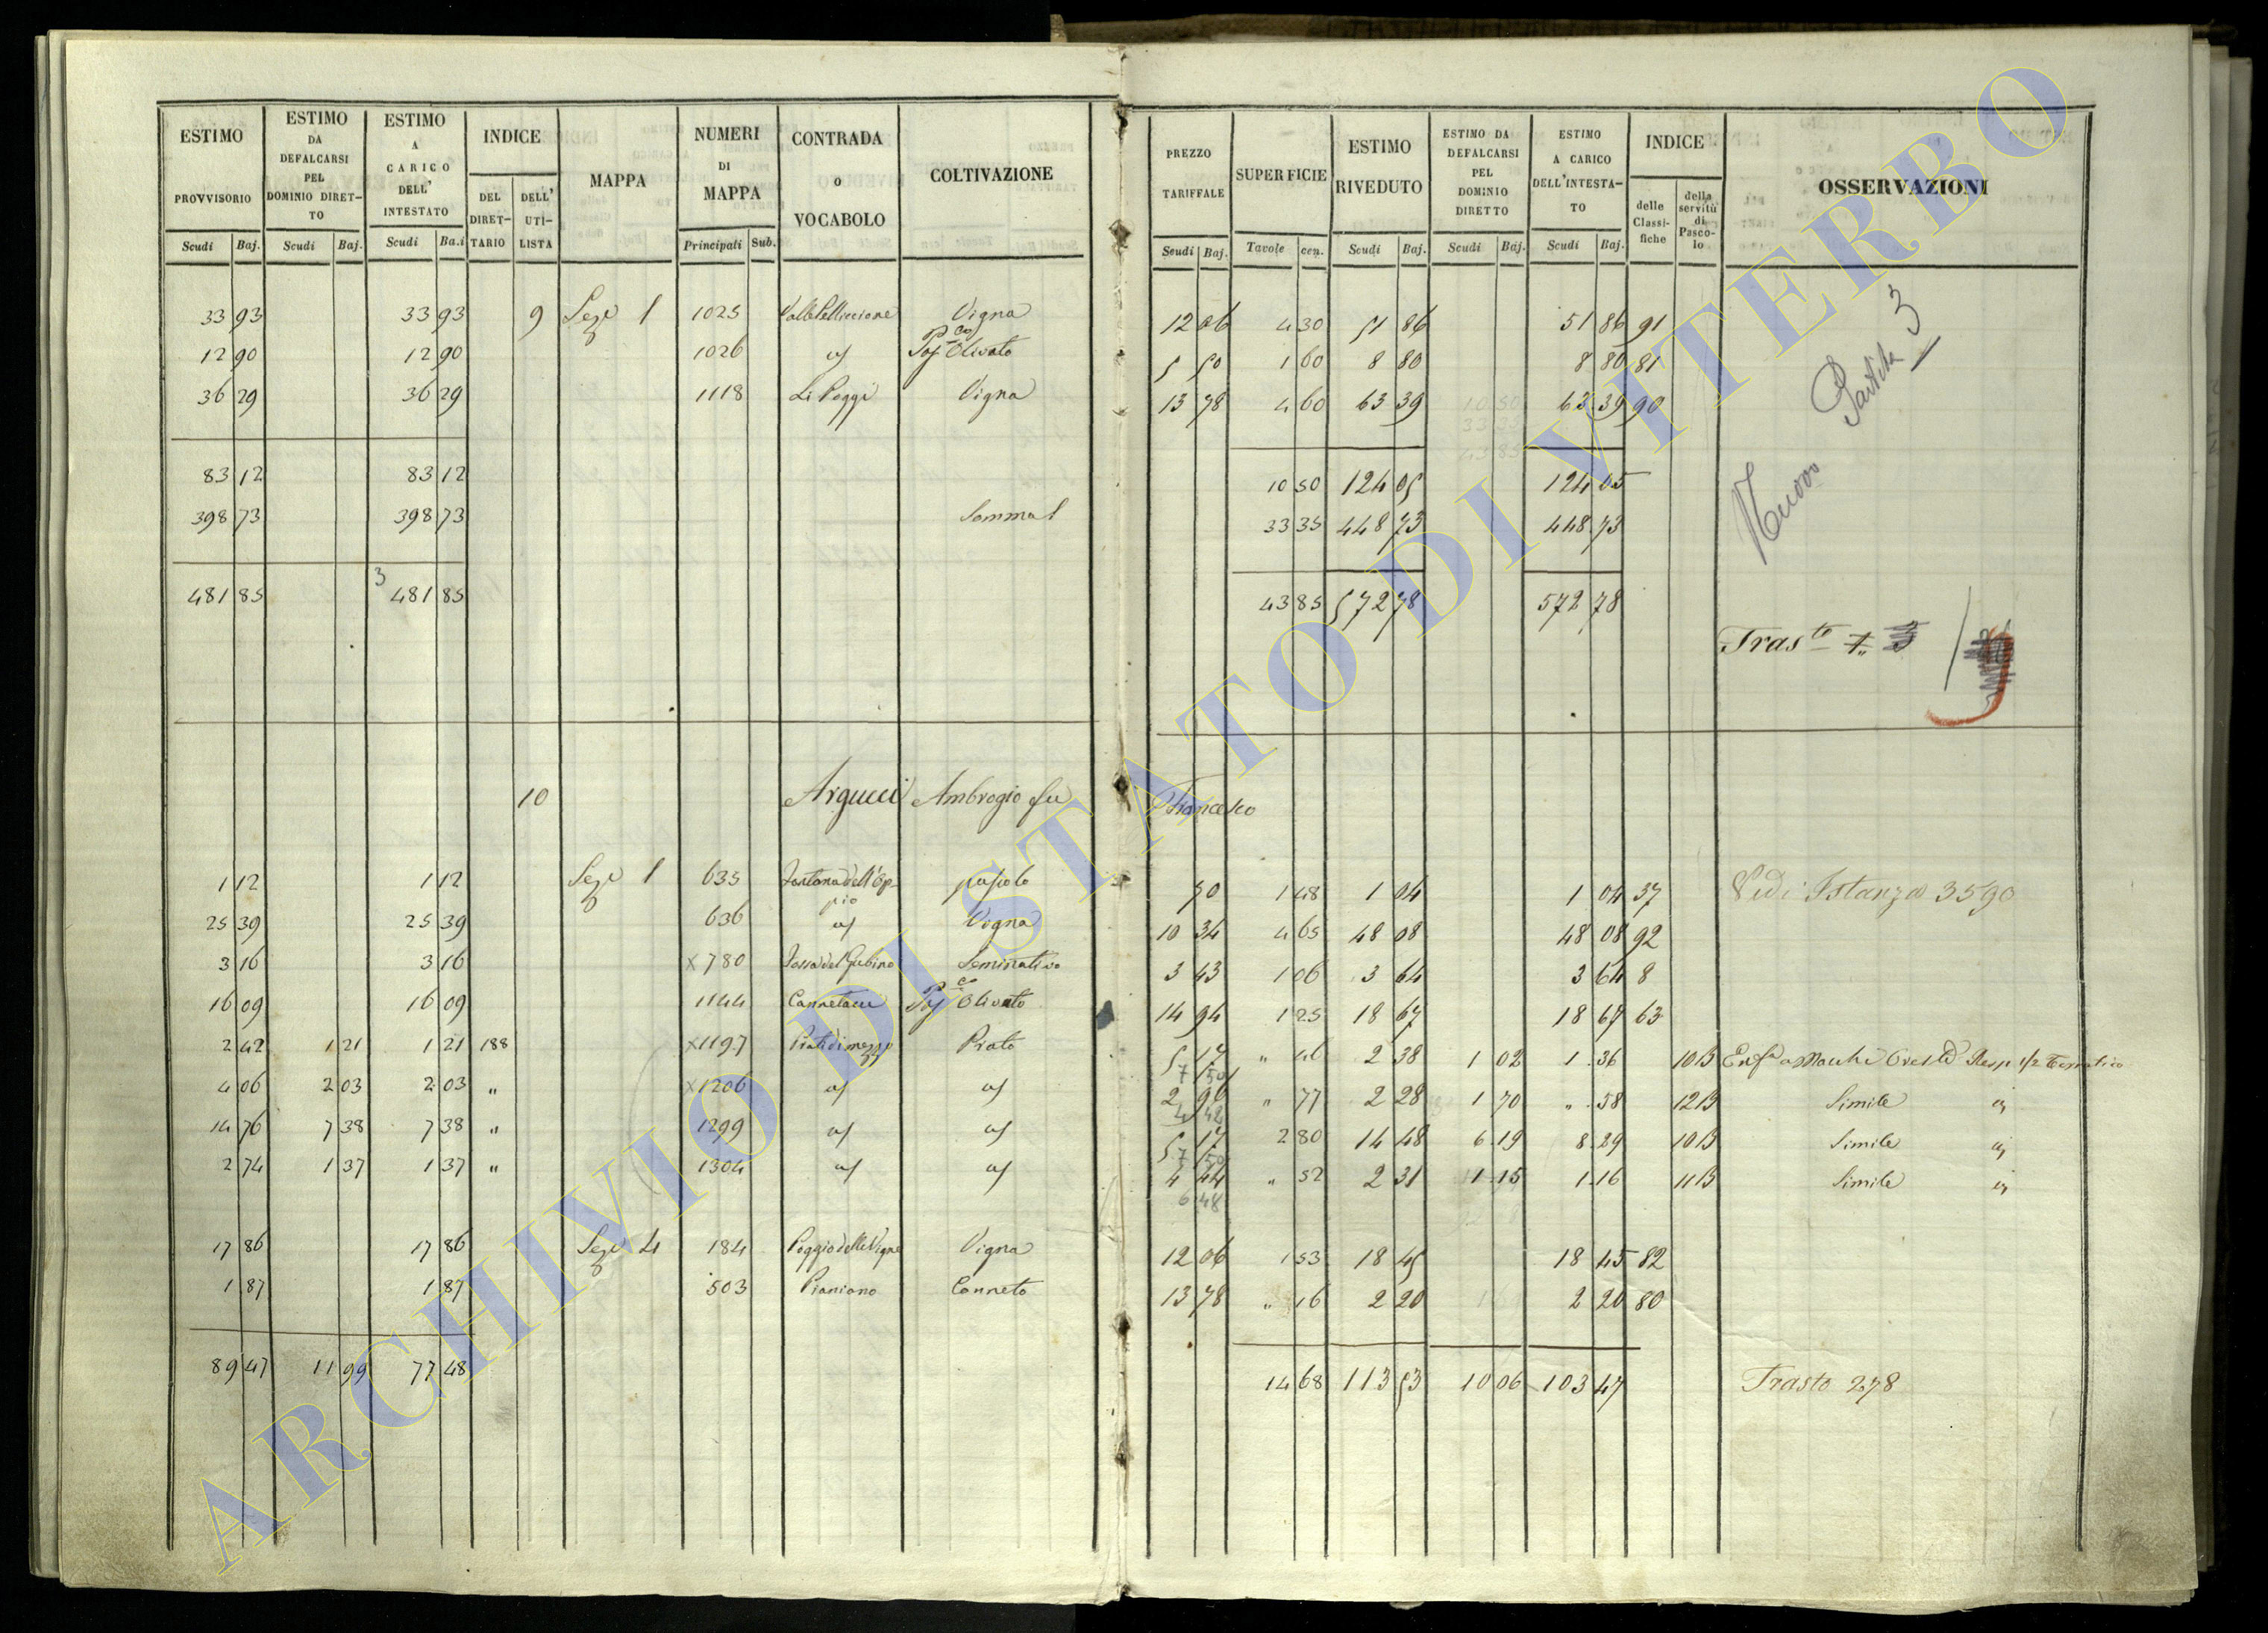 ESTIMO PROVVISORIO Scudi Baj. | ESTIMO DA DEFALCARSI PEL DOMINIO DIRET-TO Scudi Baj. | ESTIMO A CARICO DELL' INTESTATO Scudi Ba.i | INDICE DEL DIRET-TARIO DELL' UTI-LISTA | MAPPA | NUMERI DI MAPPA Principali Sub. | CONTRADA O VOCABOLO | COLTIVAZIONE
33 93 33 93 9 Seze 1 1025 Valle Pelliccione Vigna
12 90 12 90 1026 Olivato
36 29 36 29 1118 Li Poggi Vigna
83 12 83 12
398 73 398 73 Somma 1
481 85 3 481 85
10 Argucci Ambrogio fu
1 12 1 12 Seze 1 635 Fontana dell'Op-pio pascolo
25 39 25 39 636 Vigna
3 16 3 16 x 780 Seminativo
16 09 16 09 1144 Cannetacce Olivato
2 42 1 21 1 21 188 x 1197 Prati di mezzo Prato
4 06 2 03 2 03 " x 1206
14 76 7 38 7 38 " 1299
2 74 1 37 1 37 " 1304
17 86 17 86 Seze 4 184 Poggio delle Vigne Vigna
1 87 1 87 503 Pianiano Canneto
89 47 11 99 77 48
PREZZO TARIFFALE Scudi Baj. | SUPERFICIE Tavole cen. | ESTIMO RIVEDUTO Scudi Baj. | ESTIMO DA DEFALCARSI PEL DOMINIO DIRETTO Scudi Baj. | ESTIMO A CARICO DELL'INTESTA-TO Scudi Baj. | INDICE delle Classi-fiche della servitù di Pasco-lo | OSSERVAZIONI
12 06 4 30 51 86 51 86 91
5 50 1 60 8 80 8 80 81
13 78 4 60 63 39 63 39 90
Nuovo Partita 3
10 50 124 05 124 05
33 35 448 73 448 73
43 85 572 78 572 78
Trasto
Francesco
50 1 48 1 04 1 04 37 Vedi Istanza 3590
10 34 4 65 48 08 48 08 92
3 43 1 06 3 64 3 64 8
14 94 1 25 18 67 18 67 63
5 17 " 46 2 38 1 02 1 36 10B Resp 1/2
7 50
2 96 " 77 2 28 1 70 " 58 12B Simile
4 42
5 17 2 80 14 48 6 19 8 29 10B Simile
7 50
4 44 " 52 2 31 1 15 1 16 11B Simile
6 48
12 06 1 53 18 45 18 45 82
13 78 " 16 2 20 2 20 80
14 68 113 53 10 06 103 47 Trasto 278
ARCHIVIO DI STATO DI VITERBO